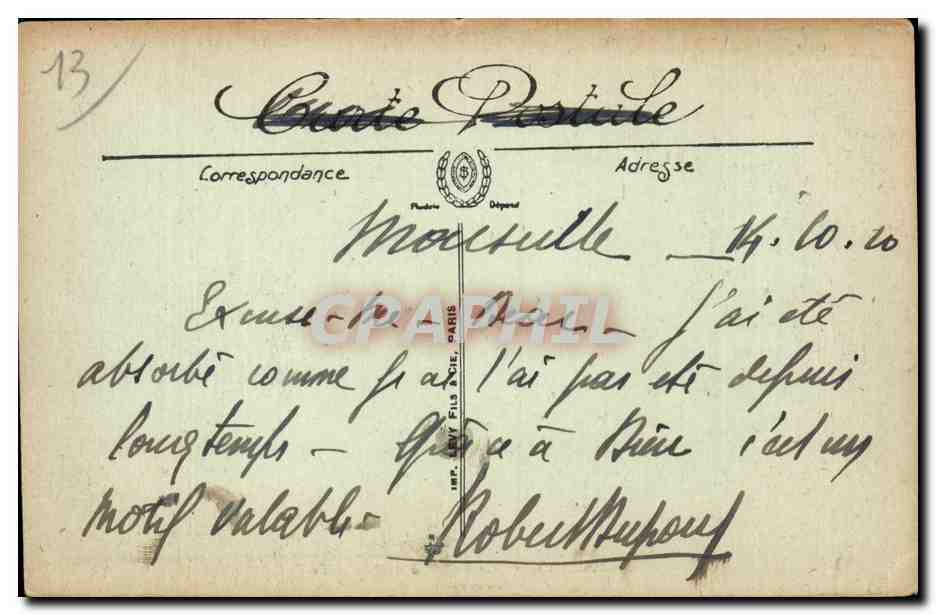 13
Carte Postale
Correspondance
Adresse
Phototypie Déposé
Marseille _ 14.10.20
Excuse-
J'ai été
absorbé comme je ne l'ai pas été depuis
longtemps - Grâce à c'est un
motif valable -
Robert Dupont
IMP. LEVY FILS & CIE, PARIS
CPARPHIL